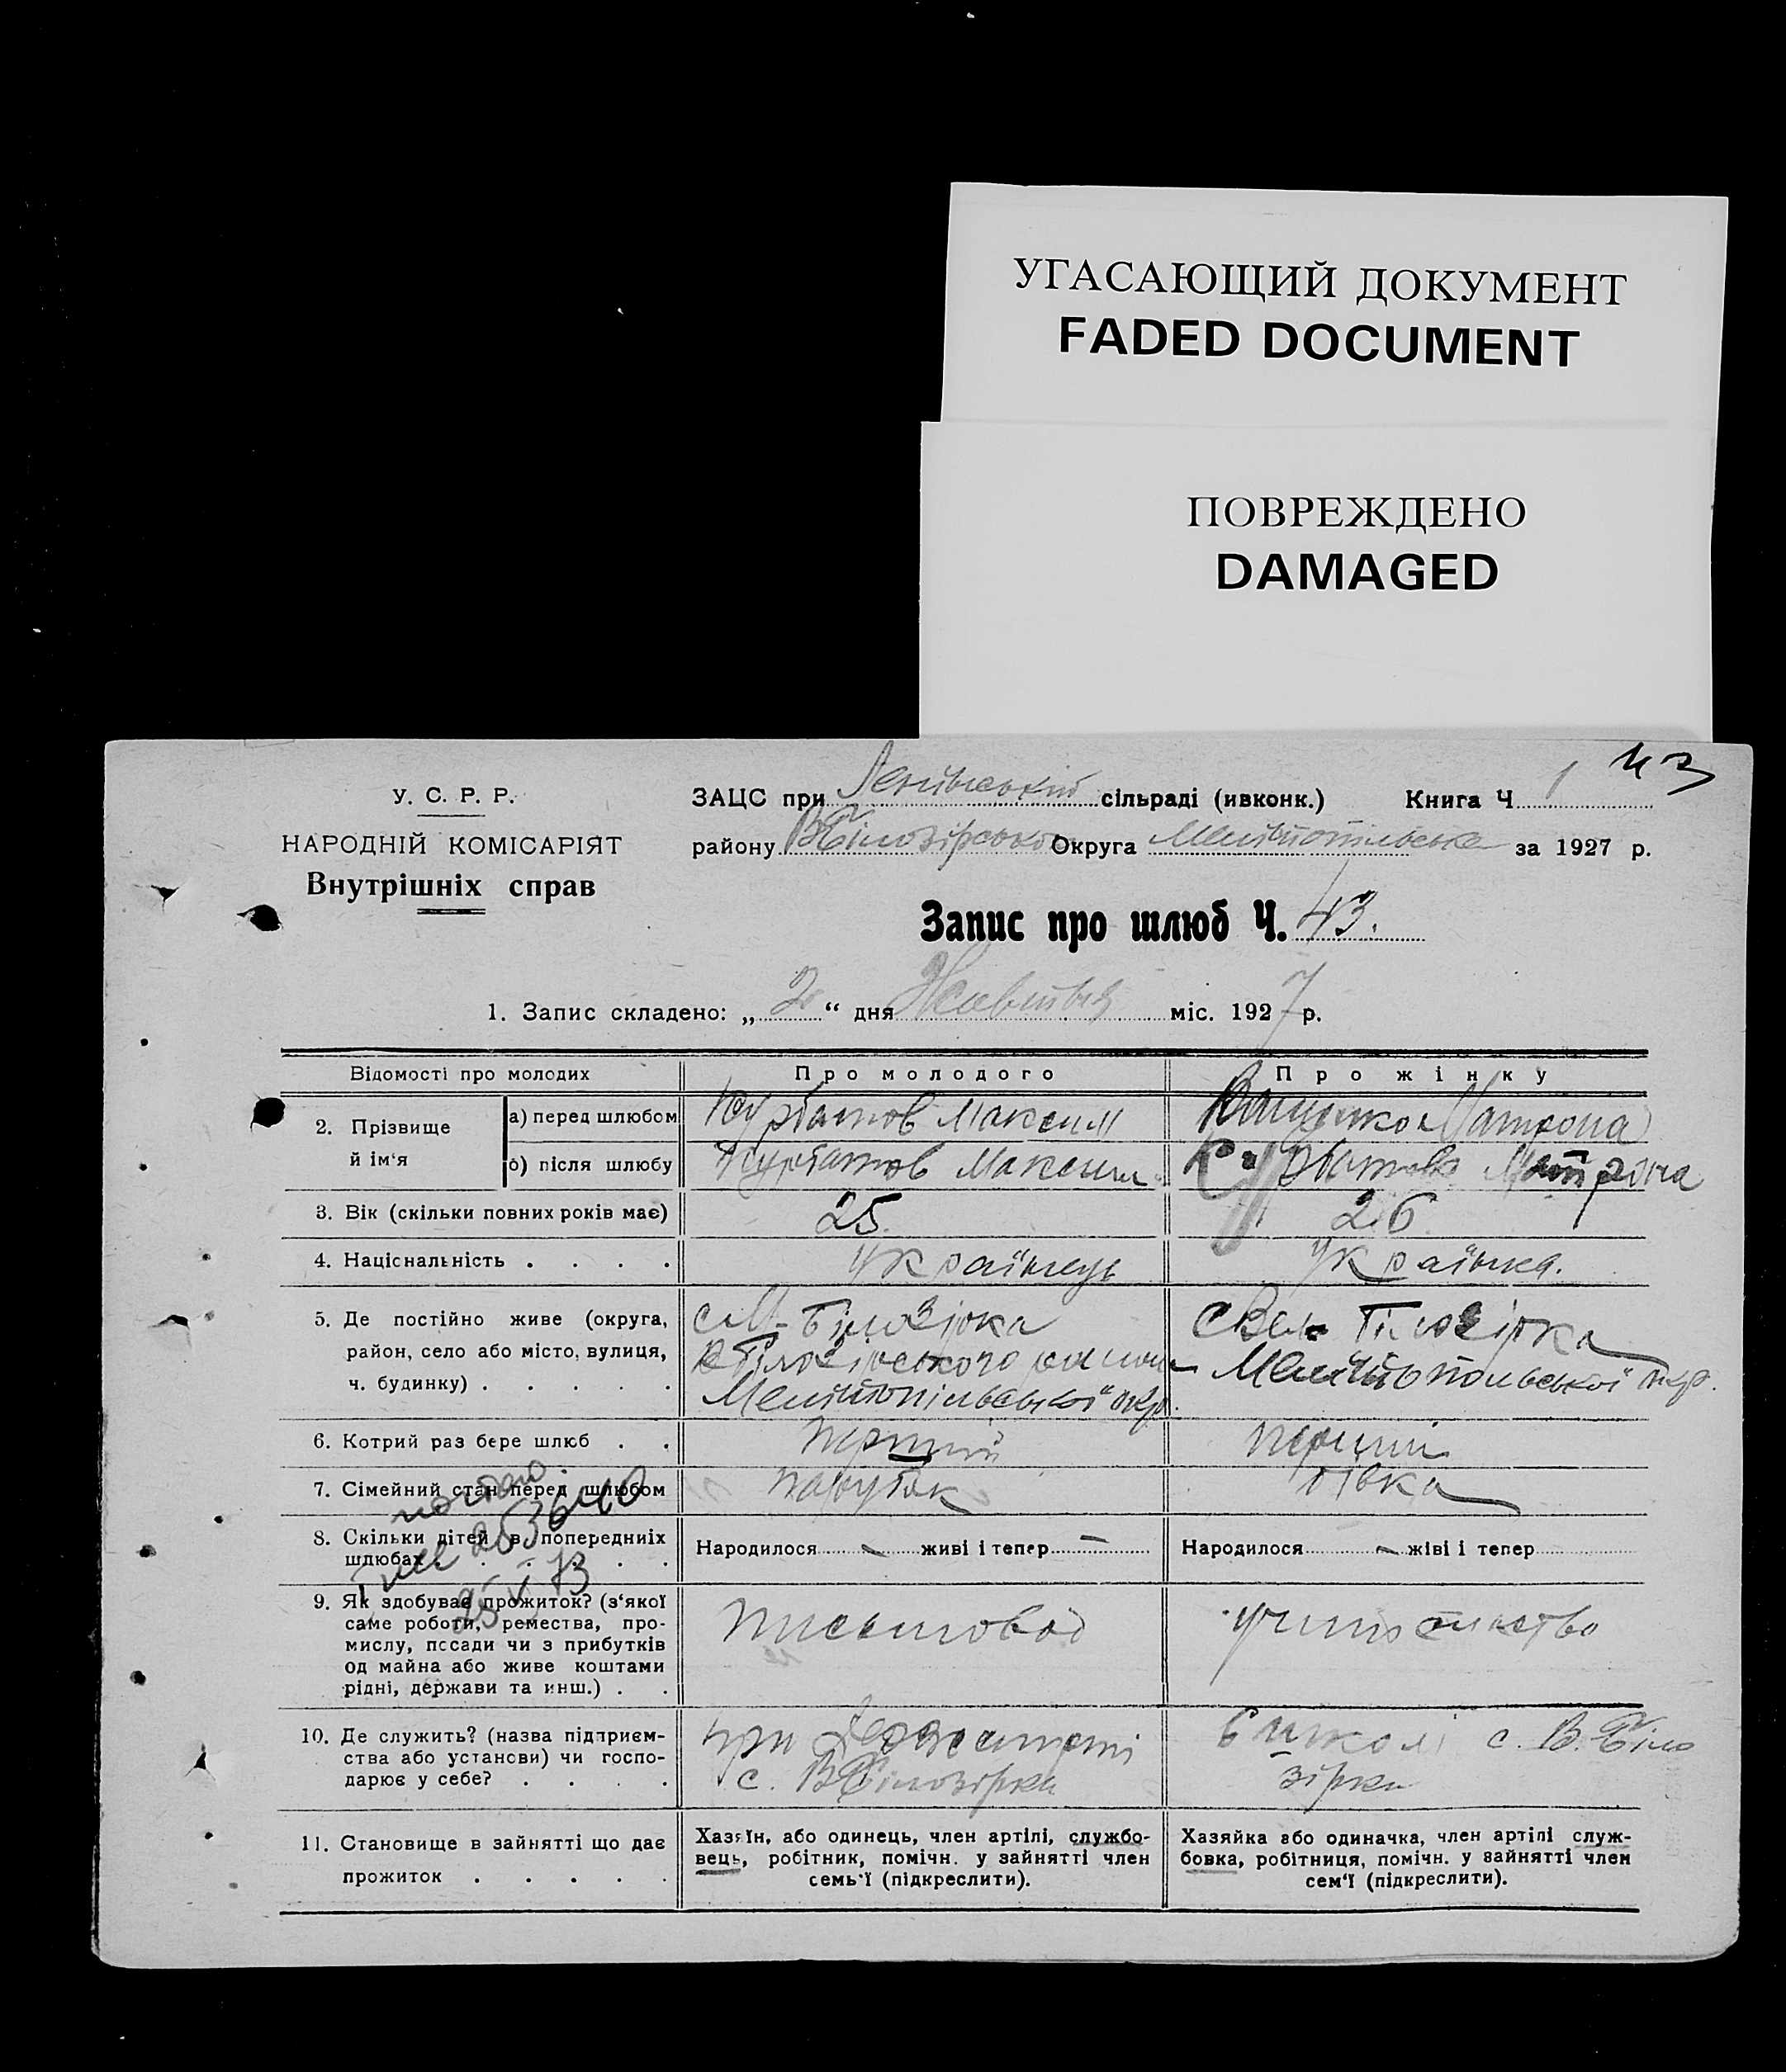 УГАСАЮЩИЙ ДОКУМЕНТ
FADED DOCUMENT
ПОВРЕЖДЕНО
DAMAGED
43
У. С. Р. Р.
НАРОДНІЙ КОМІСАРІЯТ
Внутрішніх справ
ЗАЦС при сільраді (ивконк.) Книга Ч 1
району В Білозірсько Округа Мелітопільська за 1927 р.
Запис про шлюб Ч. 43.
1. Запис складено: „ “ дня Жовтня міс. 1927 р.
Відомості про молодих
Про молодого
Про жінку
2. Прізвище й ім‘я
а) перед шлюбом
Курбатов Максим
Матрона
б) після шлюбу
Курбатов Максим
Курбатова Матрона
3. Вік (скільки повних років має)
25.
26
4. Національність . . . .
Українець
Українка.
5. Де постійно живе (округа,
район, село або місто, вулиця,
ч. будинку) . . . . .
с М-Білозірка
В Білозірського району
Мелітопільської окр.
с Вел Білозірка
Мелітопольської окр.
6. Котрий раз бере шлюб . .
перший
перший
7. Сімейний стан перед шлюбом
парубок
дівка
8. Скільки дітей в попередніх
шлюбах . . . . .
Народилося — живі і тепер —
Народилося — жіві і тепер
253640
25 VI 73
9. Як здобуває прожиток? (з‘якої
саме роботи, ремества, про-
мислу, посади чи з прибутків
од майна або живе коштами
рідні, держави та инш.) . .
писемовод
учительство
10. Де служить? (назва підприєм-
ства або установи) чи госпо-
дарює у себе? . . . .
при
с. В Білозірка
в школі с. В. Біло
зірки
11. Становище в зайнятті що дає
прожиток . . . . .
Хазяїн, або одинець, член артілі, службо-
вець, робітник, помічн. у зайнятті член
семь'ї (підкреслити).
Хазяйка або одиначка, член артілі служ-
бовка, робітниця, помічн. у зайнятті член
сем‘ї (підкреслити).